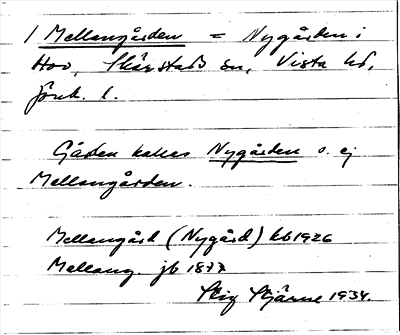 / Mellangården = Nygården i
Hov, Skärstads sn, Vista hd,
Jönk. l.
Gården kallas Nygården o. ej
Mellangården.
Mellangård (Nygård) kb 1926
Mellang. jb 1877
Stig Stjärne 1934.